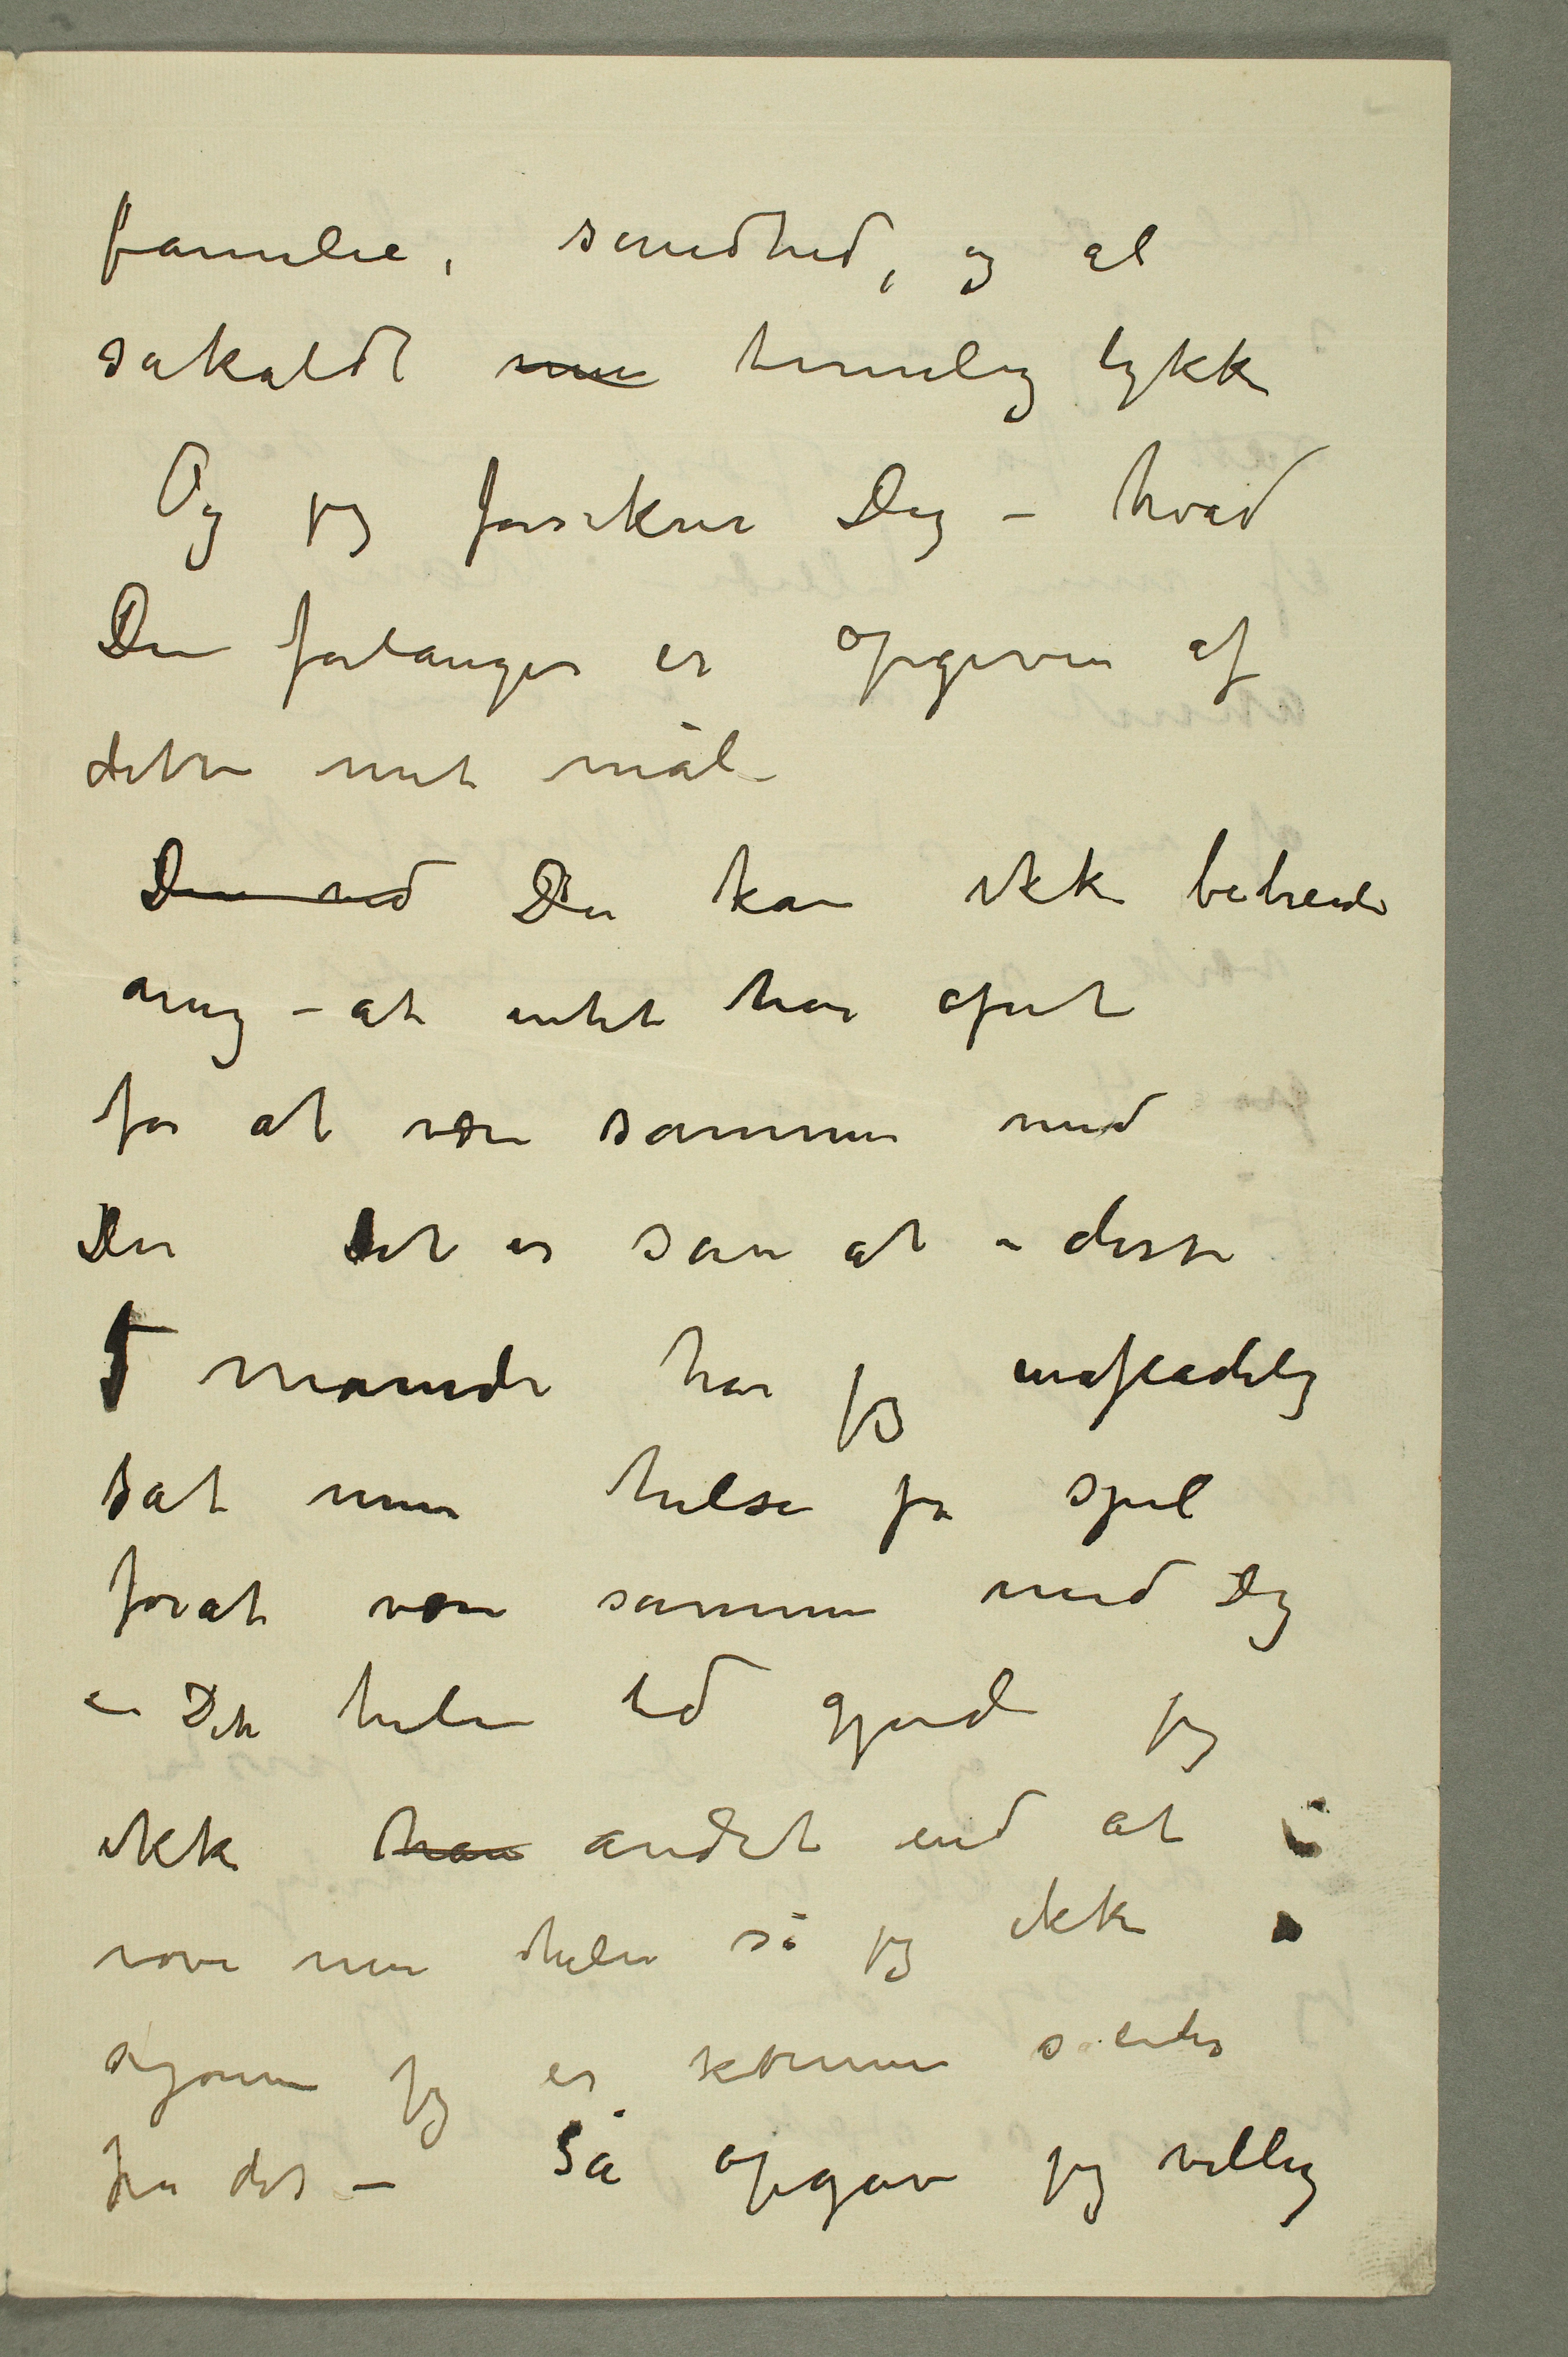 familie, sundhed, og al
såkaldt ~~min~~ timelig lykke
Og jeg forsikrer Dig – hvad
Du forlanger er opgiven af
dette mit mål –
~~Du ved~~ Du kan ikke bebreide
mig – at intet har ofret
for at være sammen med
Dig Det er som at – disse
måneder har jeg uafladelig
sat min helse på spil
forat være sammen med Dig
– Den hele tid gjorde jeg
ikke ~~han~~ andet end at
sove min helse så jeg ikke
jeg er kommen således
fra det – Så opgav jeg villig